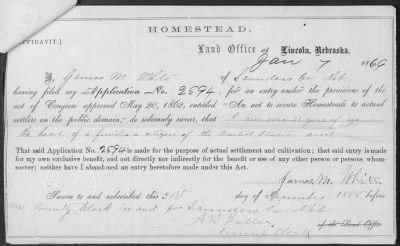 HOMESTEAD.
(AFFIDAVIT.)
Land Office at Lincoln, Nebraska.
Jan 7 1869
I, James M. White of Saunders Co Neb
having filed my Application No. 2594, for an entry under the provisions of the
act of Congress approved May 20, 1862, entitled "An act to secure Homesteads to actual
settlers on the public domain," do solemnly swear, that I am over 21 years of age
the head of a family a citizen of the United States and
That said Application No. 2594 is made for the purpose of actual settlement and cultivation; that said entry is made
for my own exclusive benefit, and not directly nor indirectly for the benefit or use of any other person or persons whom-
soever; neither have I abandoned an entry heretofore made under this Act.
James M. White
Sworn to and subscribed this 21st day of December 1868 before
me County Clerk in and for Saunders Co Neb
of the Land Office
County Clerk